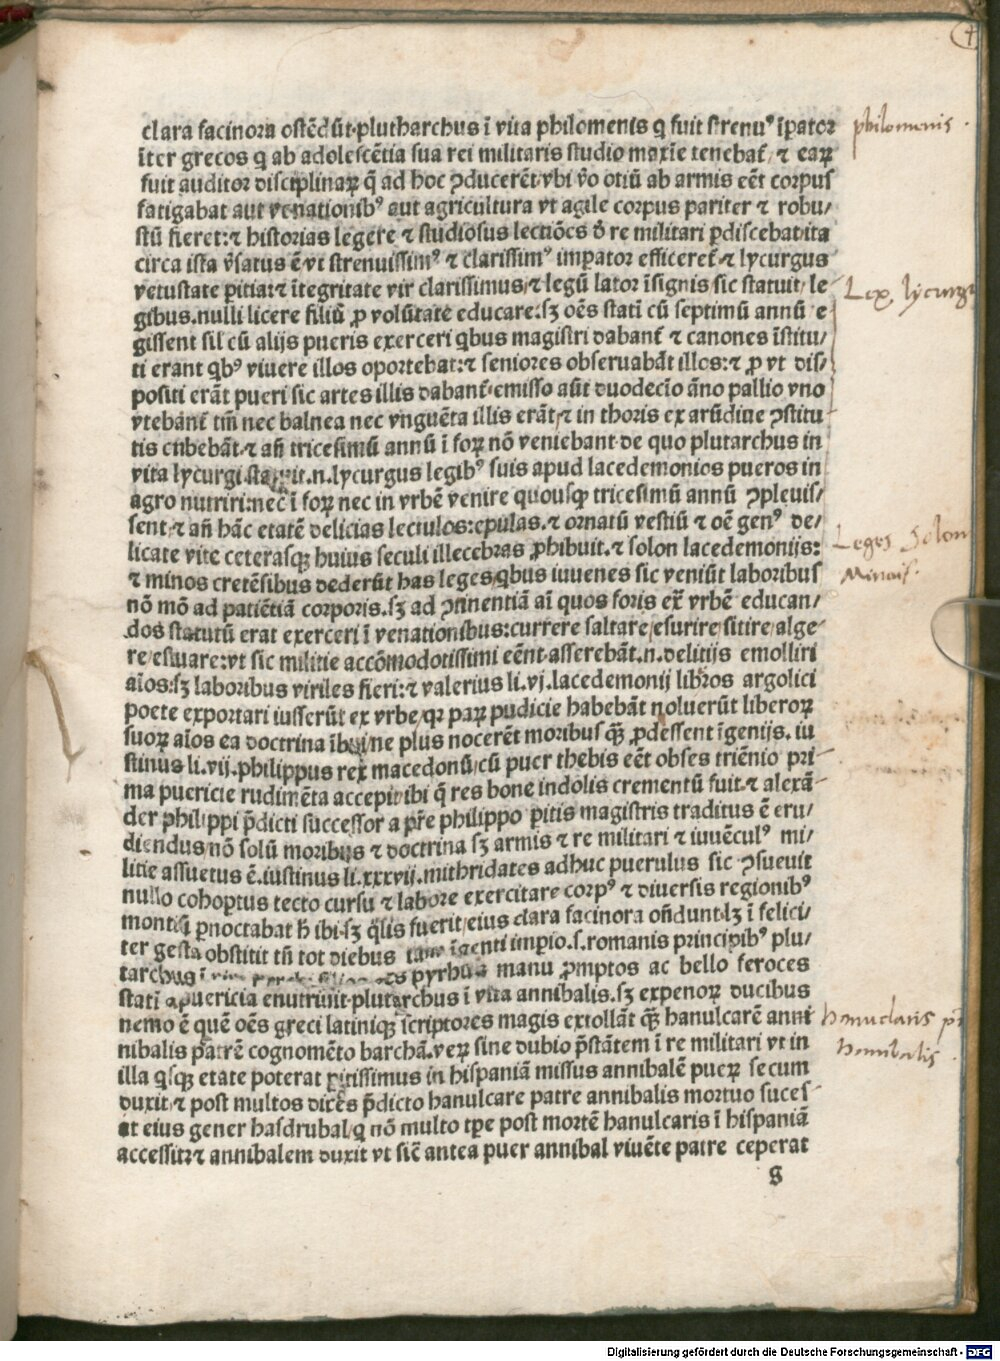 4
clara facinora ostēdūt·plutharchus ī vita philomenis q fuit strenuꝰ īpator
īter grecos q ab adolescētia sua rei militaris studio maxīe tenebat̄ ⁊ eaꝝ
fuit auditor disciplinaꝝ q̄ ad hoc ꝯducerēt/vbi v̄o otiū ab armis eēt corpus
fatigabat aut venationibꝰ aut agricultura vt agile corpus pariter ⁊ robu/
stū fieret:⁊ historias legere ⁊ studiosus lectiōes d̄ re militari ꝑdiscebat·ita
circa ista v̄satus ē vt strenuissimꝰ ⁊ clarissimꝰ impator efficeret̄·⁊ lycurgus
vetustate ꝑitia:⁊ ītegritate vir clarissimus/⁊ legū lator īsignis sic statuit/ le
gibus.nulli licere filiū ꝓ volūtate educare:sꝫ oēs stati cū septimū annū e
gissent sil̄ cū alijs pueris exerceri qbus magistri dabant̄ ⁊ canones īstitu/
ti erant qbꝰ viuere illos oportebat:⁊ seniores obseruabāt illos:⁊ ꝓ vt dis/
positi erāt pueri sic artes illis dabant̄·emisso aūt duodecīo āno pallio vno
vtebānt̄ tm̄ nec balnea nec vnguēta illis erāt/⁊ in thoris ex arūdine ꝯstitu
tis cubebāt·⁊ añ tricesimū annū ī foꝝ nō veniebant·de quo plutarchus in
vita lycurgi.statuit.n.lycurgus legibꝰ suis apud lacedemonios pueros in
agro nutriri:nec ī foꝝ nec in vrbē venire quousqꝫ tricesimū annū ꝯpleuis/
sent·⁊ añ hāc etatē delicias lectulos:epulas.⁊ ornatū vestiū ⁊ oē genꝰ de/
licate vite ceterasqꝫ huius seculi illecebras ꝓhibuit.⁊ solon lacedemonijs:
⁊ minos cretēsibus dederūt has leges/qbus iuuenes sic veniūt laboribus
nō mō ad patiētiā corporis.sꝫ ad ꝯtinentiā aī quos foris ex̄ vrbē educan/
dos statutū erat exerceri ī venationibus:currere saltare/esurire/sitire/alge
re/estuare:vt sic militie accōmodotissimi eēnt·asserebāt.n.delitijs emolliri
aīos:sꝫ laboribus viriles fieri:⁊ valerius li.vj.lacedemonij libros argolici
poete exportari iusserūt ex vrbe/qꝛ paꝝ pudicie habebāt noluerūt liberoꝝ
suoꝝ aīos ea doctrina ībui/ne plus nocerēt moribus qꝫ ꝓdessent īgenijs. iu
stinus li.vij.philippus rex macedonū/cū puer thebis eēt obses triēnio pri
ma puericie rudimēta accepit/ibi q̄ res bone indolis crementū fuit·⁊ alexā
der philippi p̄dicti successor a pr̄e philippo ꝑitis magistris traditus ē eru/
diendus/nō solū moribus ⁊ doctrina sꝫ armis ⁊ re militari ⁊ iuuēculꝰ mi/
litie assuetus ē.iustinus li.xxxvij.mithridates adhuc puerulus sic ꝯsueuit
nullo cohoptus tecto cursu ⁊ labore exercitare corpꝰ ⁊ diuersis regionibꝰ
montiū ꝑnoctabat h̄ ibi·sꝫ q̄lis fuerit/eius clara facinora oñdunt·lꝫ ī felici/
ter gesta obstitit tn̄ tot diebus tam īgenti impio.s.romanis principibꝰ plu/
tarchus ī pyrhus manu ꝓmptos ac bello feroces
statī a puericia enutriuit·plutarchus ī vita annibalis.sꝫ expenoꝝ ducibus
nemo ē quē oēs greci latiniqꝫ scriptores magis extollāt qꝫ hanulcarē anni
nibalis patrē cognomēto barchā.veꝝ sine dubio p̄stātem ī re militari vt in
illa qsqꝫ etate poterat ꝑitissimus in hispaniā missus annibalē pueꝝ secum
duxit·⁊ post multos dictēs p̄dicto hanulcare patre annibalis mortuo suces
it eius gener hasdrubal/q nō multo tpe post mortē hanulcaris ī hispaniā
accessit:⁊ annibalem duxit vt sic̄ antea puer annibal viuēte patre ceperat
g
philomenis.
Lex. lycurgi
Leges Solon
Minois.
hanuclaris pr̄
hannibalis.
Digitalisierung gefördert durch die Deutsche Forschungsgemeinschaft - DFG